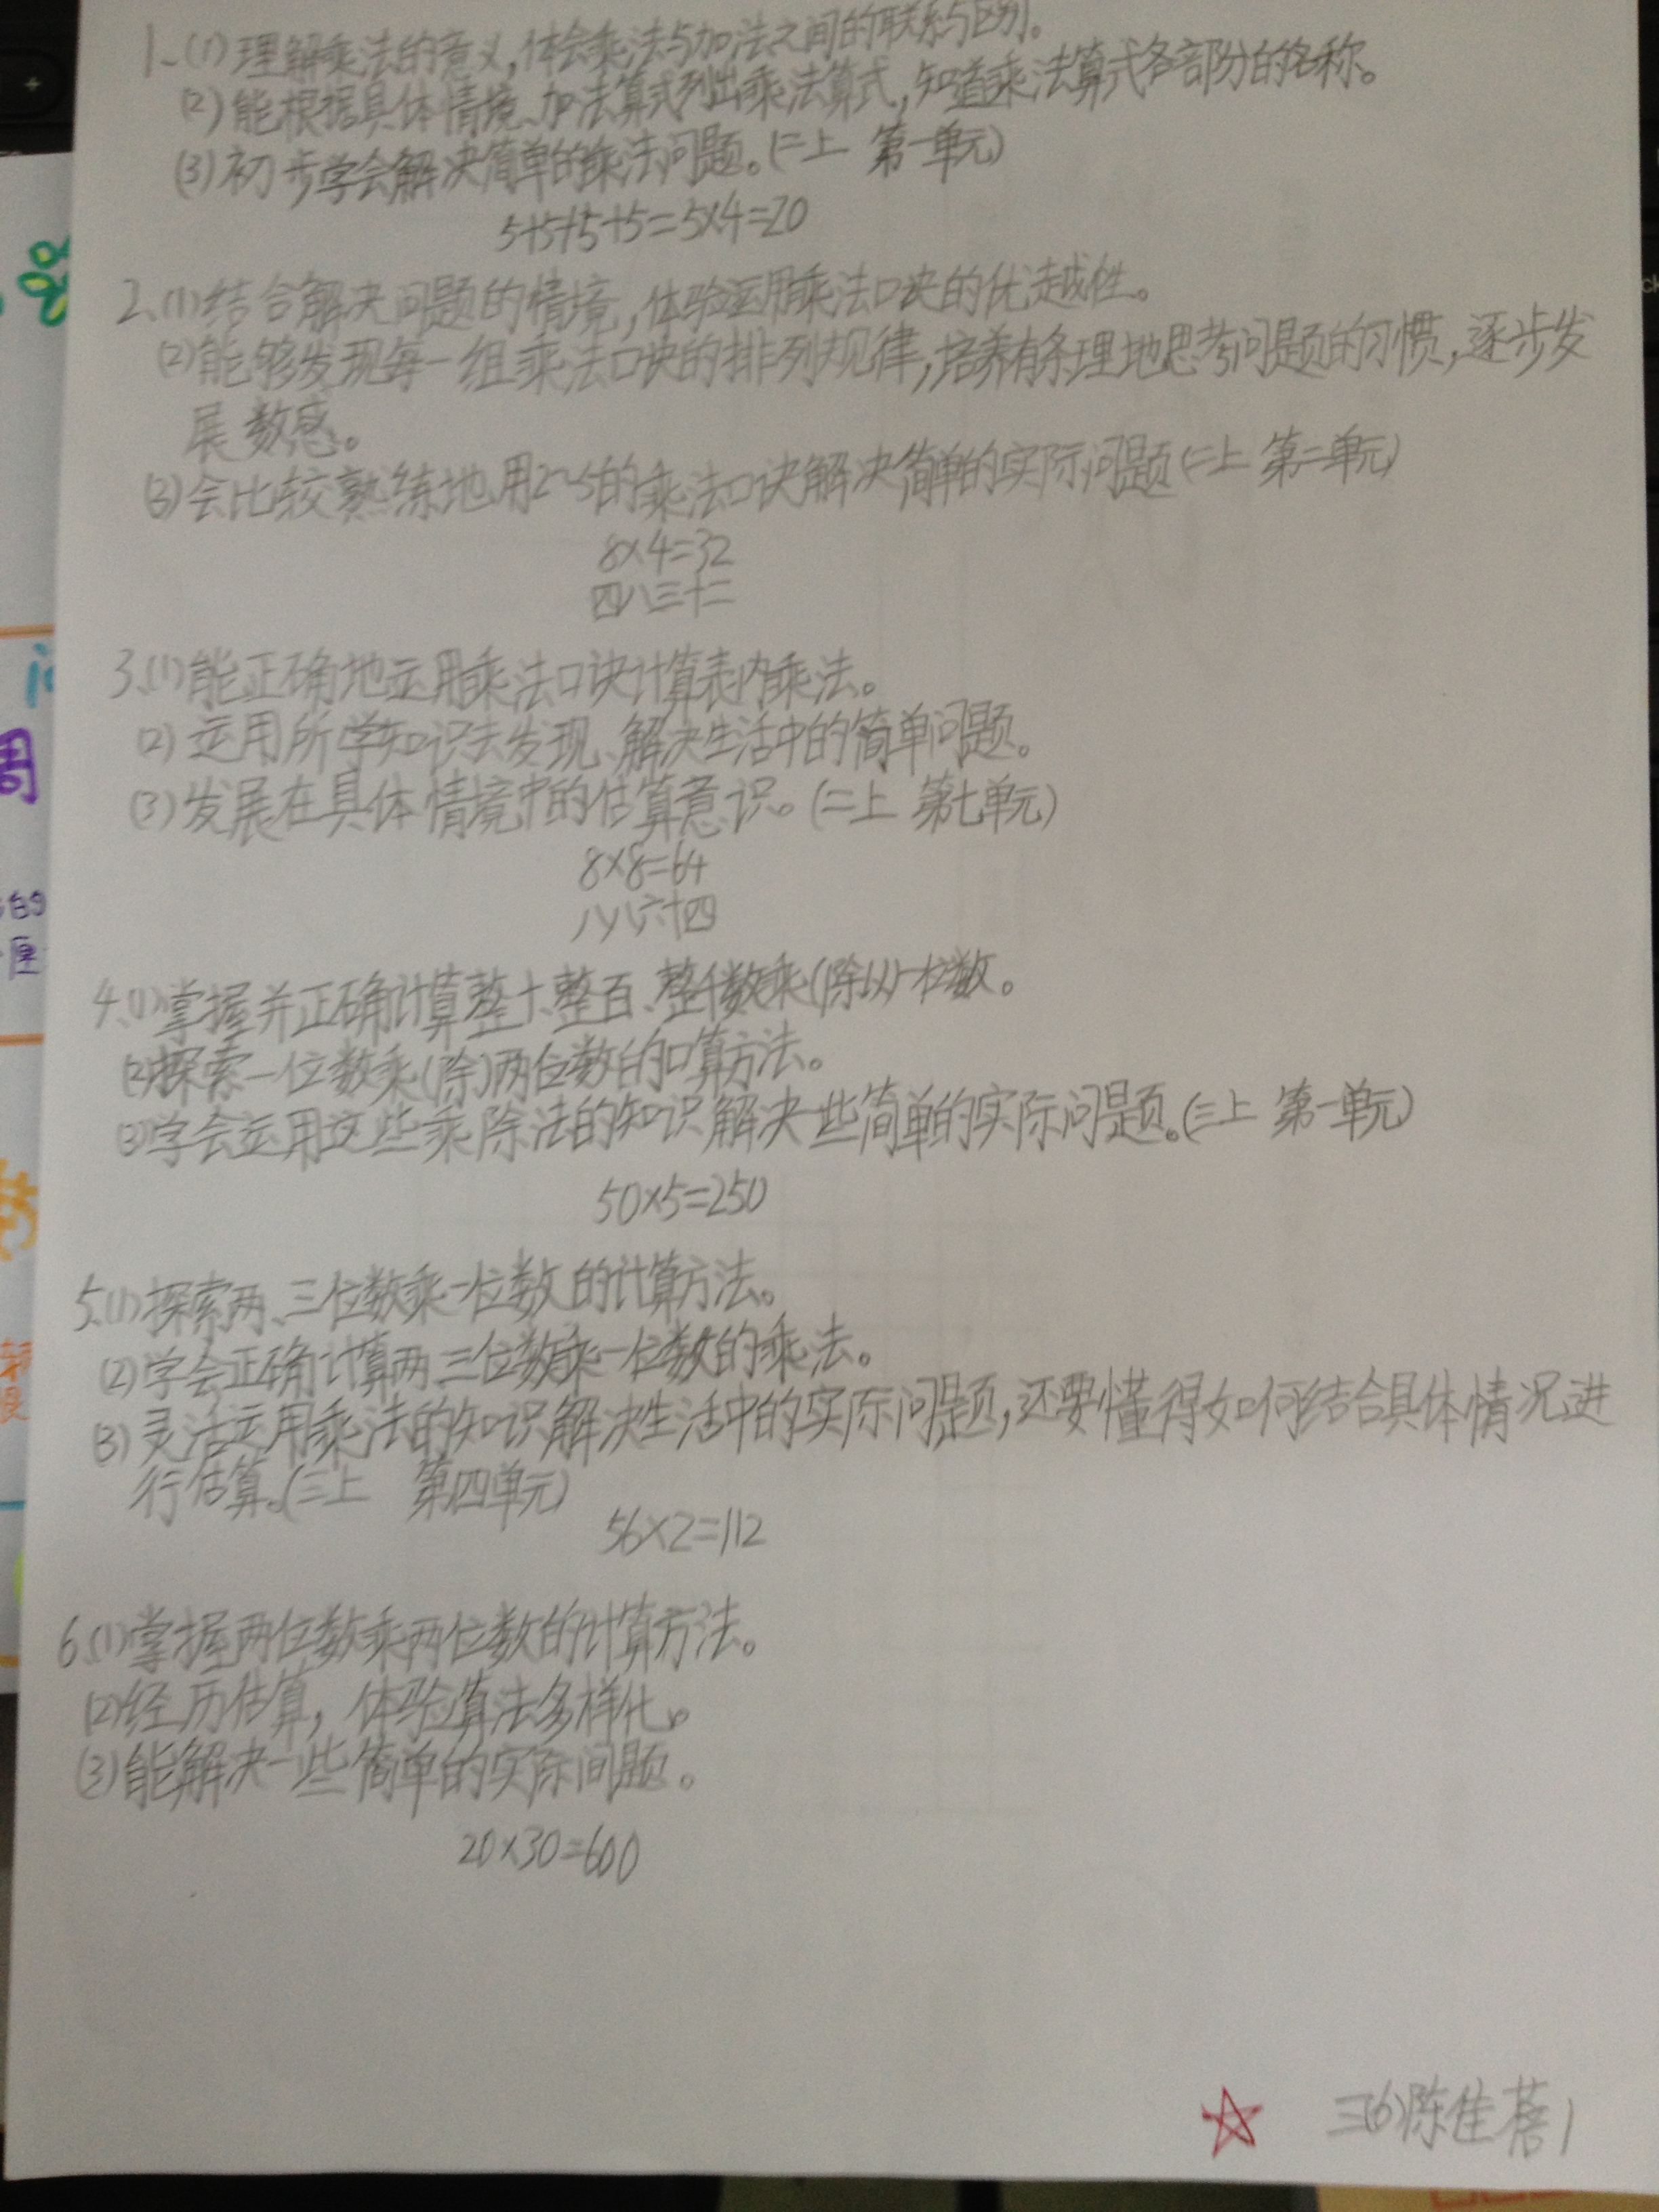 1、(1)理解乘法的意义,体会乘法与加法之间的联系与区别。
(2)能根据具体情境、加法算式列出乘法算式,知道乘法算式各部分的名称。
(3)初步学会解决简单的乘法问题。(二上 第一单元)
5+5+5+5=5×4=20
2、(1)结合解决问题的情境,体验运用乘法口诀的优越性。
(2)能够发现每一组乘法口诀的排列规律,培养有条理地思考问题的习惯,逐步发
展数感。
(3)会比较熟练地用2~5的乘法口诀解决简单的实际问题(二上 第二单元)
8×4=32
四八三十二
3、(1)能正确地运用乘法口诀计算表内乘法。
(2)运用所学知识去发现、解决生活中的简单问题。
(3)发展在具体情境中的估算意识。(二上 第七单元)
8×8=64
八八六十四
4、(1)掌握并正确计算整十、整百、整千数乘(除以)一位数。
(2)探索一位数乘(除)两位数的口算方法。
(3)学会运用这些乘除法的知识解决一些简单的实际问题。(三上 第一单元)
50×5=250
5、(1)探索两、三位数乘一位数的计算方法。
(2)学会正确计算两、三位数乘一位数的乘法。
(3)灵活运用乘法的知识解决生活中的实际问题,还要懂得如何结合具体情况进
行估算。(三上 第四单元)
56×2=112
6、(1)掌握两位数乘两位数的计算方法。
(2)经历估算,体验算法多样化。
(3)能解决一些简单的实际问题。
20×30=600
三(6)陈佳